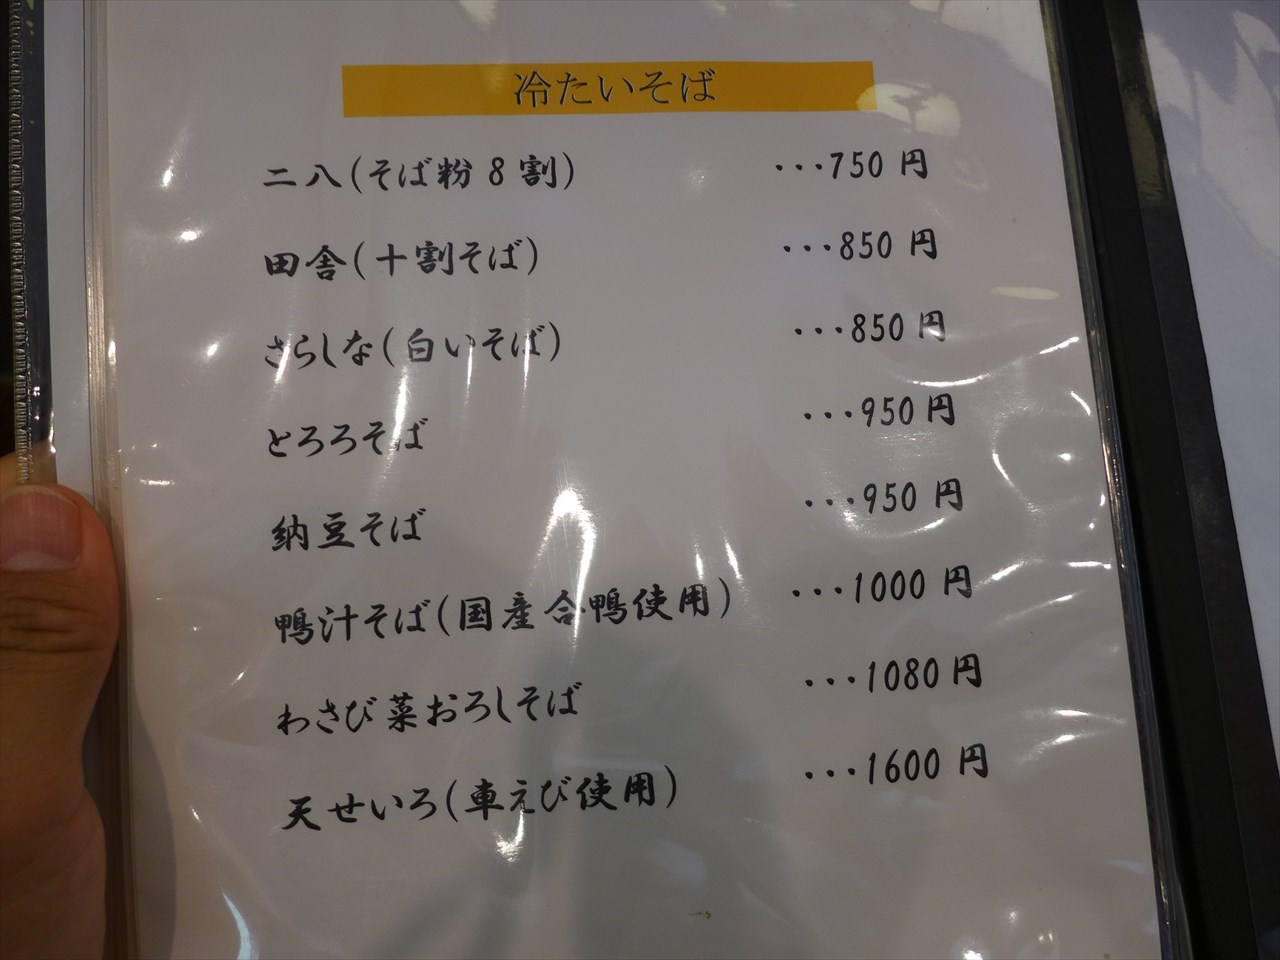 冷たいそば
二八(そば粉8割) ･･･750円
田舎(十割そば) ･･･850円
さらしな(白いそば) ･･･850円
とろろそば ･･･950円
納豆そば ･･･950円
鴨汁そば(国産合鴨使用) ･･･1000円
わさび菜おろしそば ･･･1080円
天せいろ(車えび使用) ･･･1600円